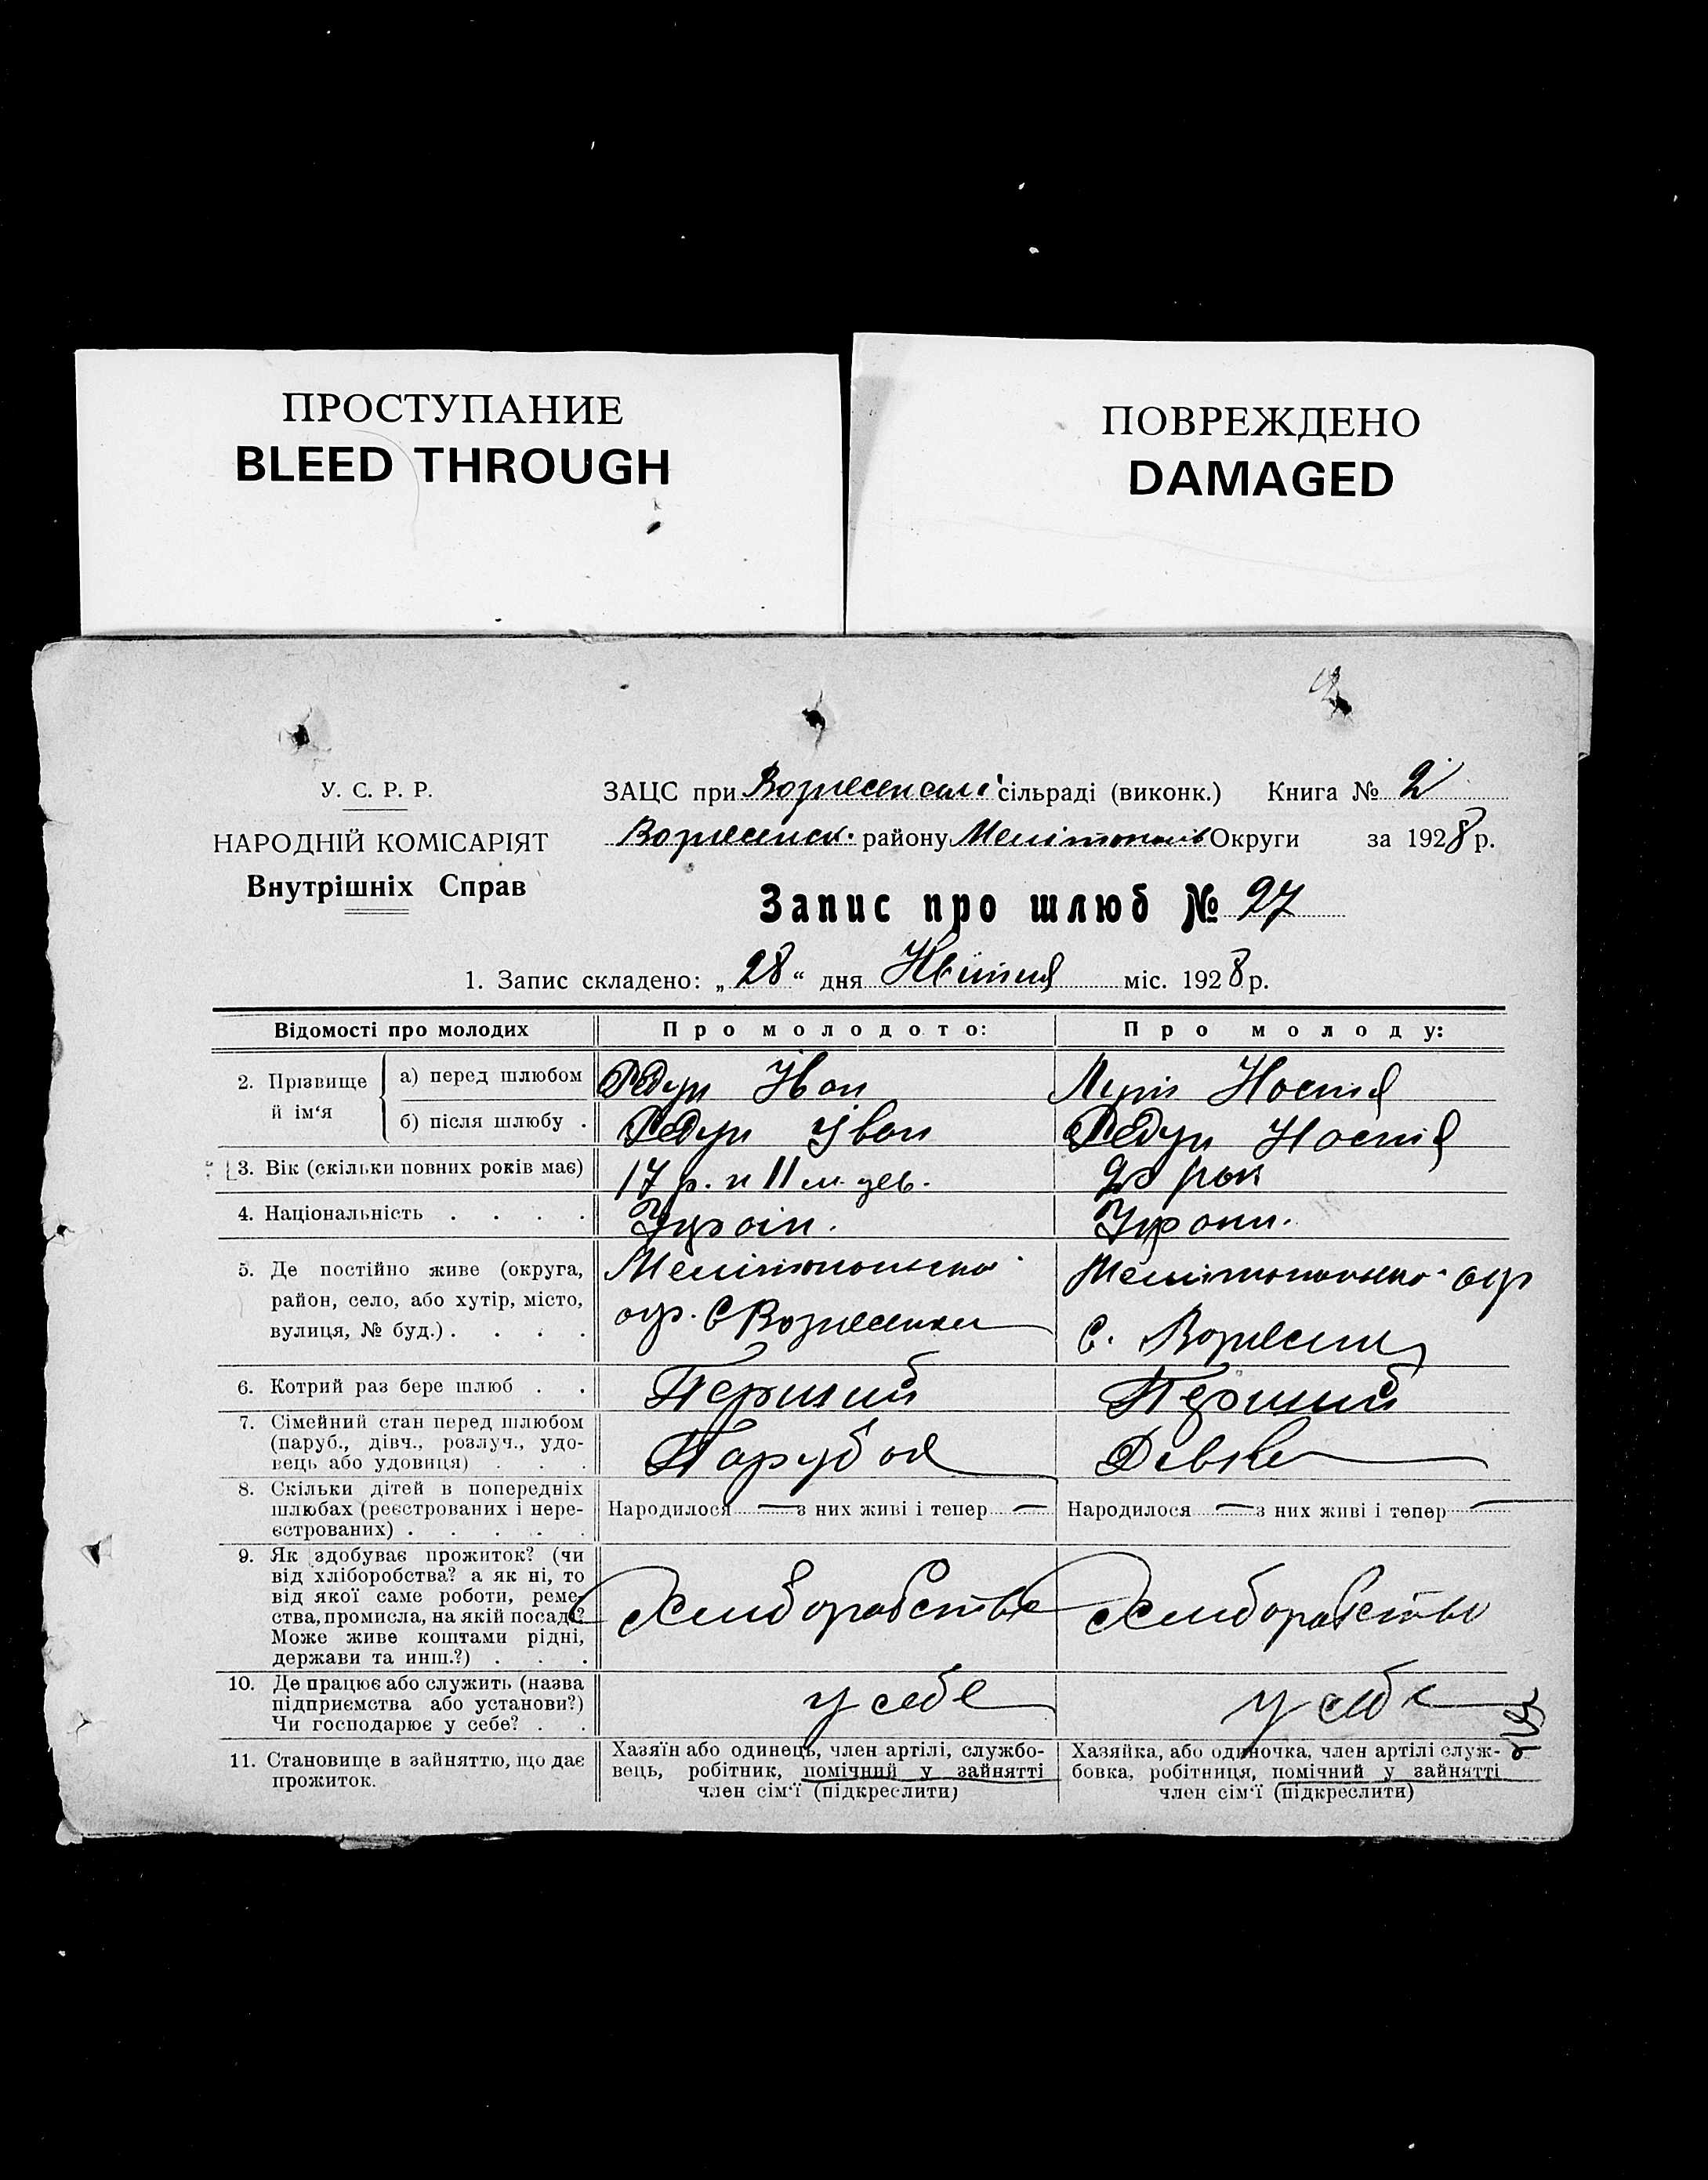 ПРОСТУПАНИЕ
BLEED THROUGH
ПОВРЕЖДЕНО
DAMAGED
У. С. Р. Р.
НАРОДНІЙ КОМІСАРІЯТ
Внутрішніх Справ
ЗАЦС при сільраді (виконк.) Книга № 2
Вознесенск. району Округи за 1928 р.
Запис про шлюб № 27
1. Запис складено: „28“ дня Квітня міс. 1928 р.
Відомості про молодих
Про молодого:
Про молоду:
2. Прізвище й ім‘я
а) перед шлюбом
Іван
б) після шлюбу .
Іван
3. Вік (скільки повних років має)
17 р. и 11 м.
4. Національність . . . .
Україн.
5. Де постійно живе (округа,
район, село, або хутір, місто,
вулиця, № буд.) . . . .
Мелітопольска
окр. С Вознесенка
Мелітопольска окр
С.
6. Котрий раз бере шлюб . .
Перший
Перший
7. Сімейний стан перед шлюбом
(паруб., дівч., розлуч., удо-
вець або удовиця) . . .
8. Скільки дітей в попередніх
шлюбах (реєстрованих і нере-
єстрованих) . . . . .
Народилося — з них живі і тепер —
Народилося — з них живі і тепер —
9. Як здобуває прожиток? (чи
від хліборобства? а як ні, то
від якої саме роботи, реме-
ства, промисла, на якій посаді?
Може живе коштами рідні,
держави та инш.?) . . .
10. Де працює або служить (назва
підприємства або установи?)
Чи господарює у себе? . .
у себе
у себе
11. Становище в зайняттю, що дає
прожиток.
Хазяїн або одинець, член артілі, службо-
вець, робітник, помічний у зайнятті
член сім‘ї (підкреслити)
Хазяйка, або одиночка, член артілі служ-
бовка, робітниця, помічний у зайнятті
член сім‘ї (підкреслити)